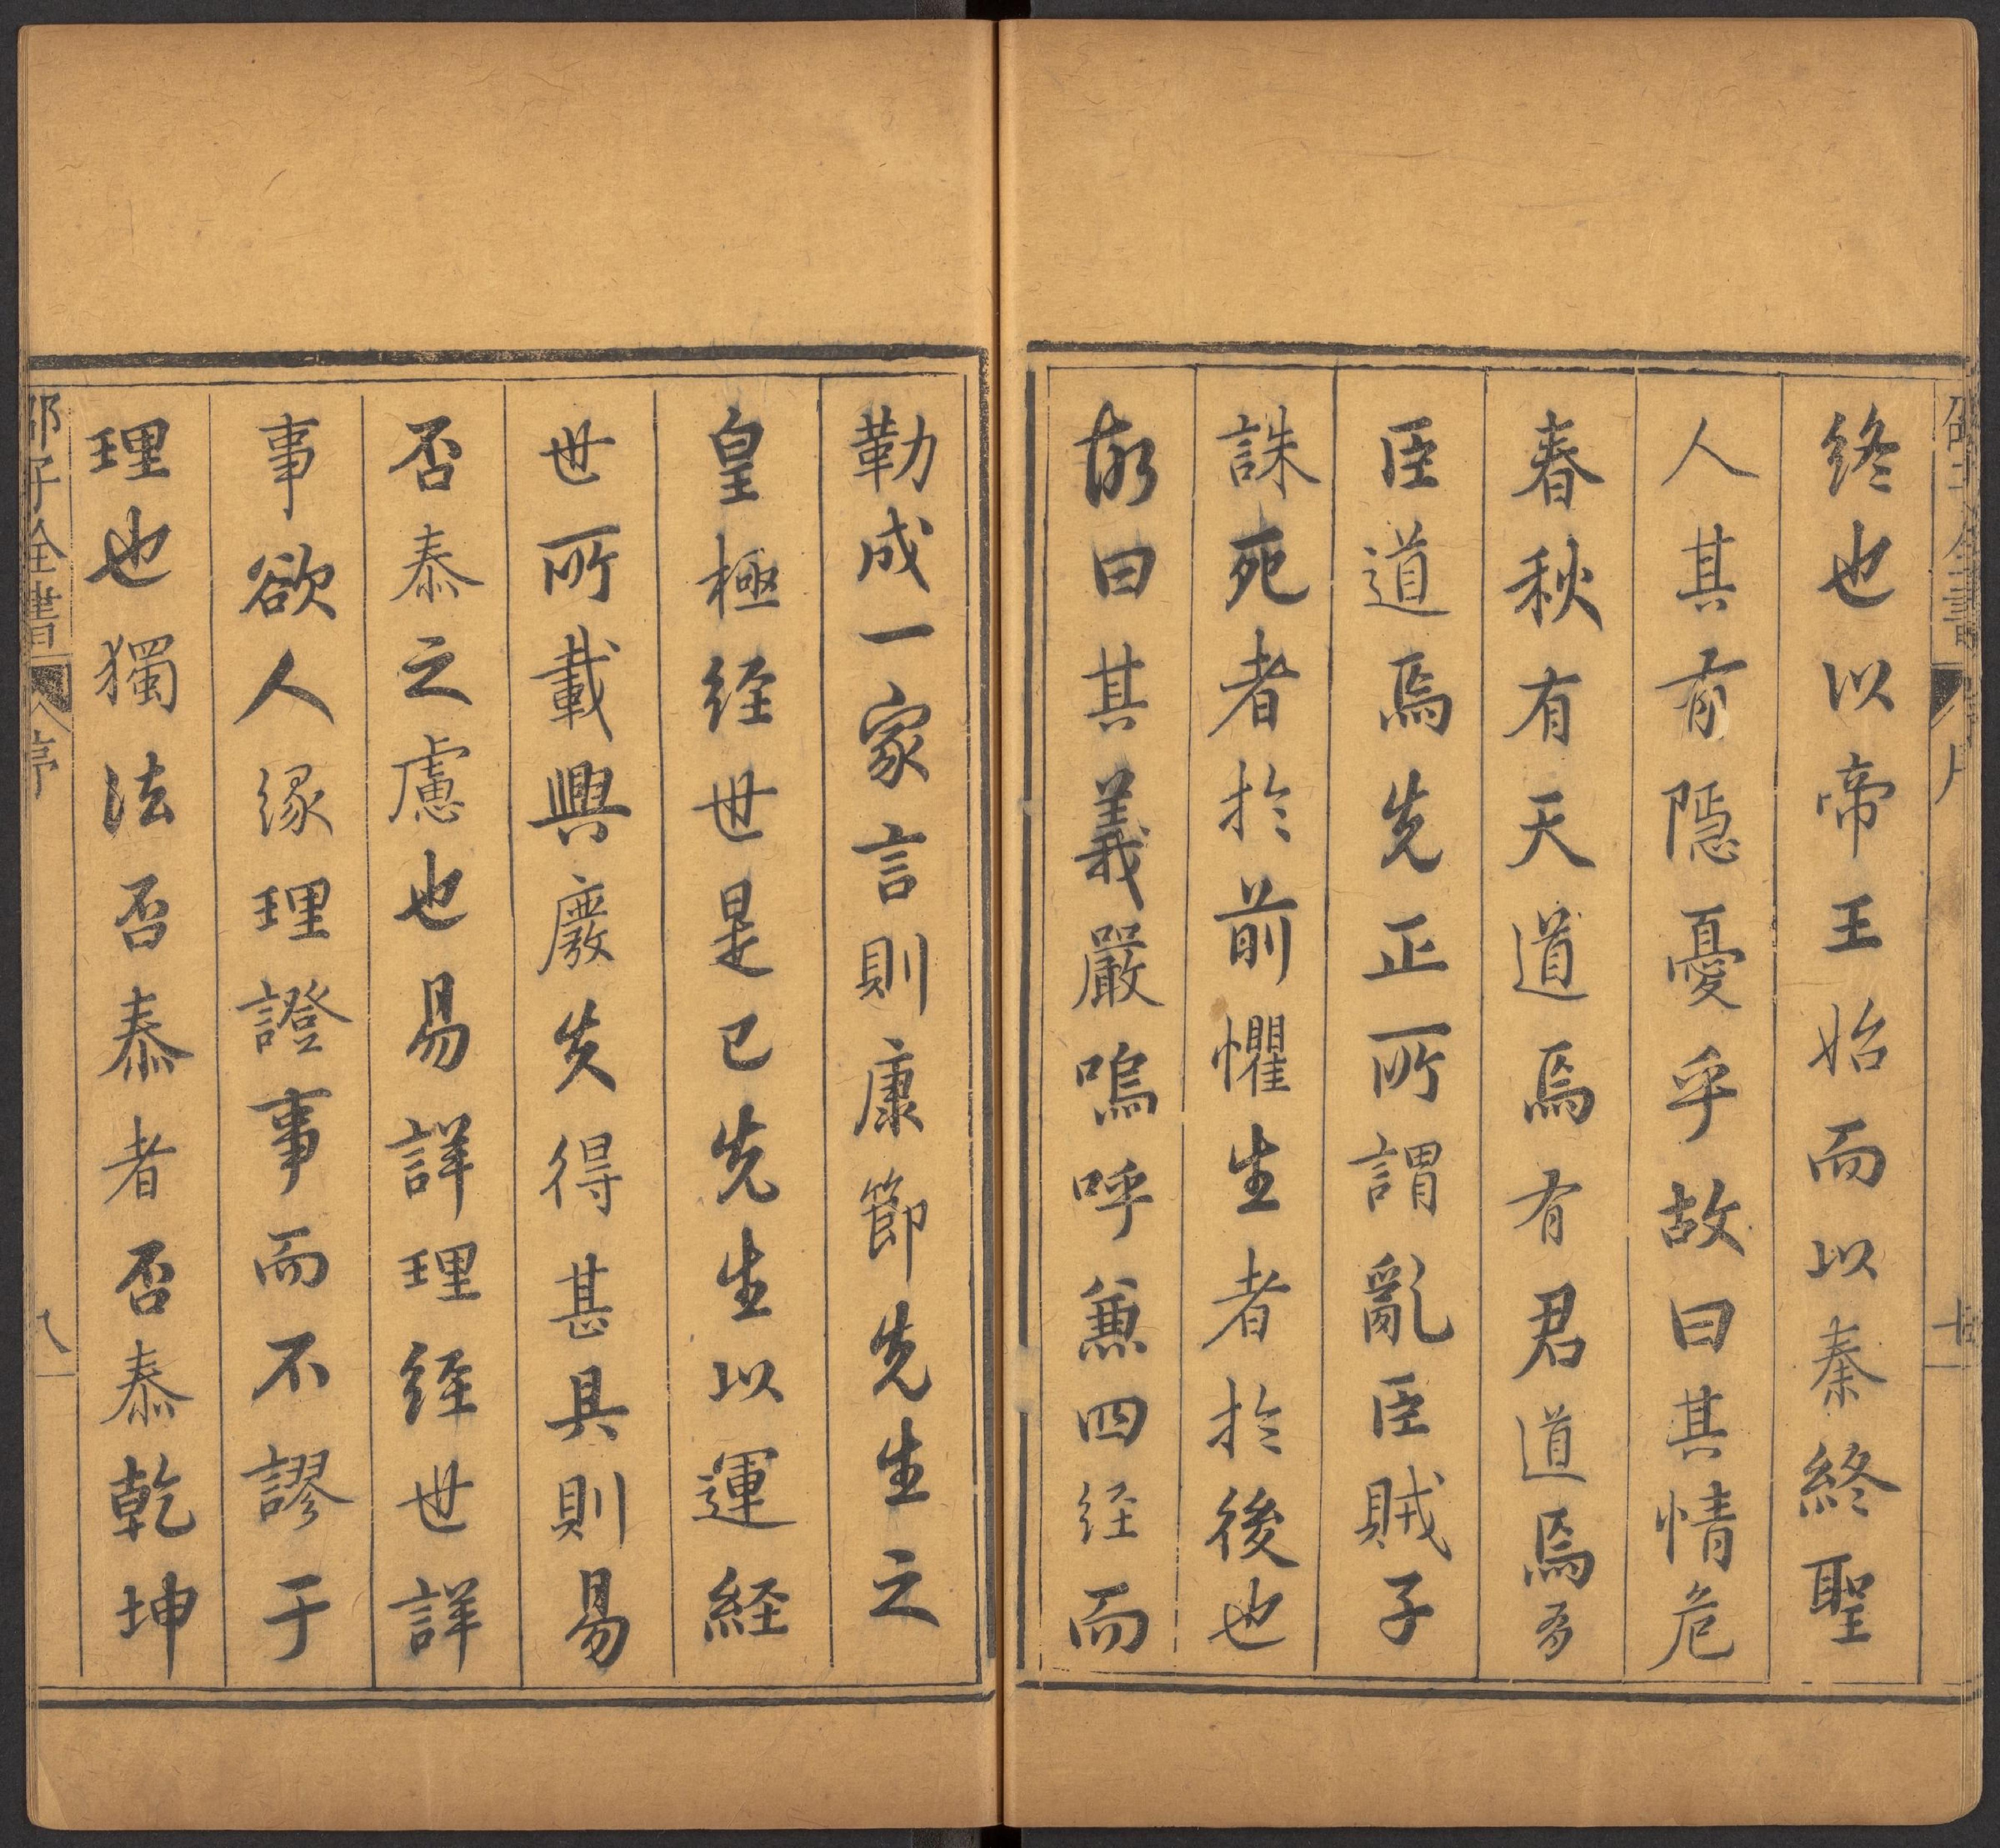 終也以帝王始而以秦終聖
人其有隱憂乎故曰其情危
春秋有天道焉有君道焉有
臣道焉先正所謂亂臣賊子
誅死者於前懼生者於後也
故曰其義嚴嗚呼兼四經而
勒成一家言則康節先生之
皇極經世是已先生以運經
世所載興廢失得甚具則易
否泰之慮也易詳理經世詳
事欲人緣理證事而不謬于
理也獨法否泰者否泰乾坤
邵子全書 序 八